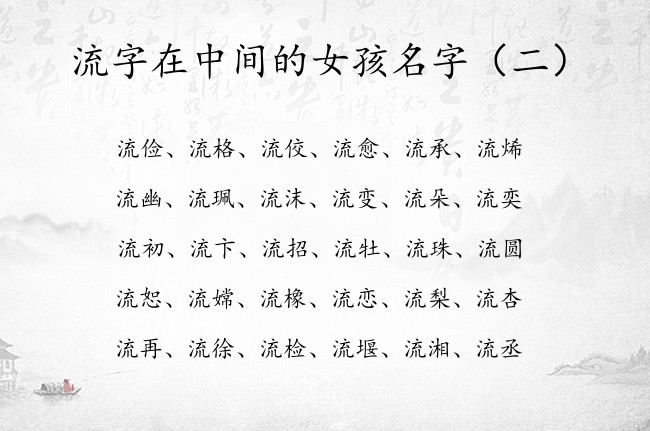 流字在中间的女孩名字（二）
流俭、流格、流佼、流愈、流承、流烯
流幽、流珮、流沫、流变、流朵、流奕
流初、流卞、流招、流牡、流珠、流圆
流恕、流嫦、流橡、流恋、流梨、流杏
流再、流徐、流检、流堰、流湘、流丞